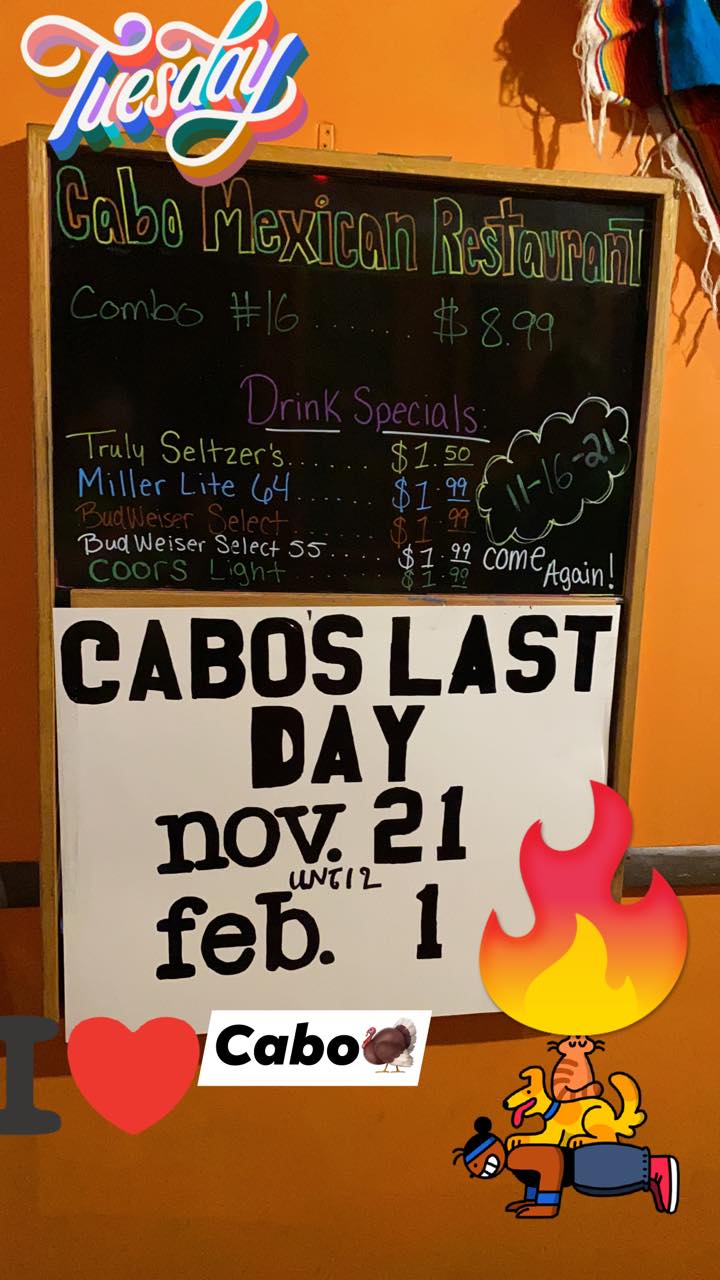 Tuesday
Cabo Mexican Restaurant
Combo #16 ........ $8.99
Drink Specials:
Truly Seltzer's...... $1.50
Miller Lite 64....... $1.99
BudWeiser Select ...... $1.99
BudWeiser Select 55.... $1.99
Coors Light ...... $1.99
11-16-21
come Again!
CABO'S LAST
DAY
nov. 21
UNTIL
feb. 1
I ❤️ Cabo🦃